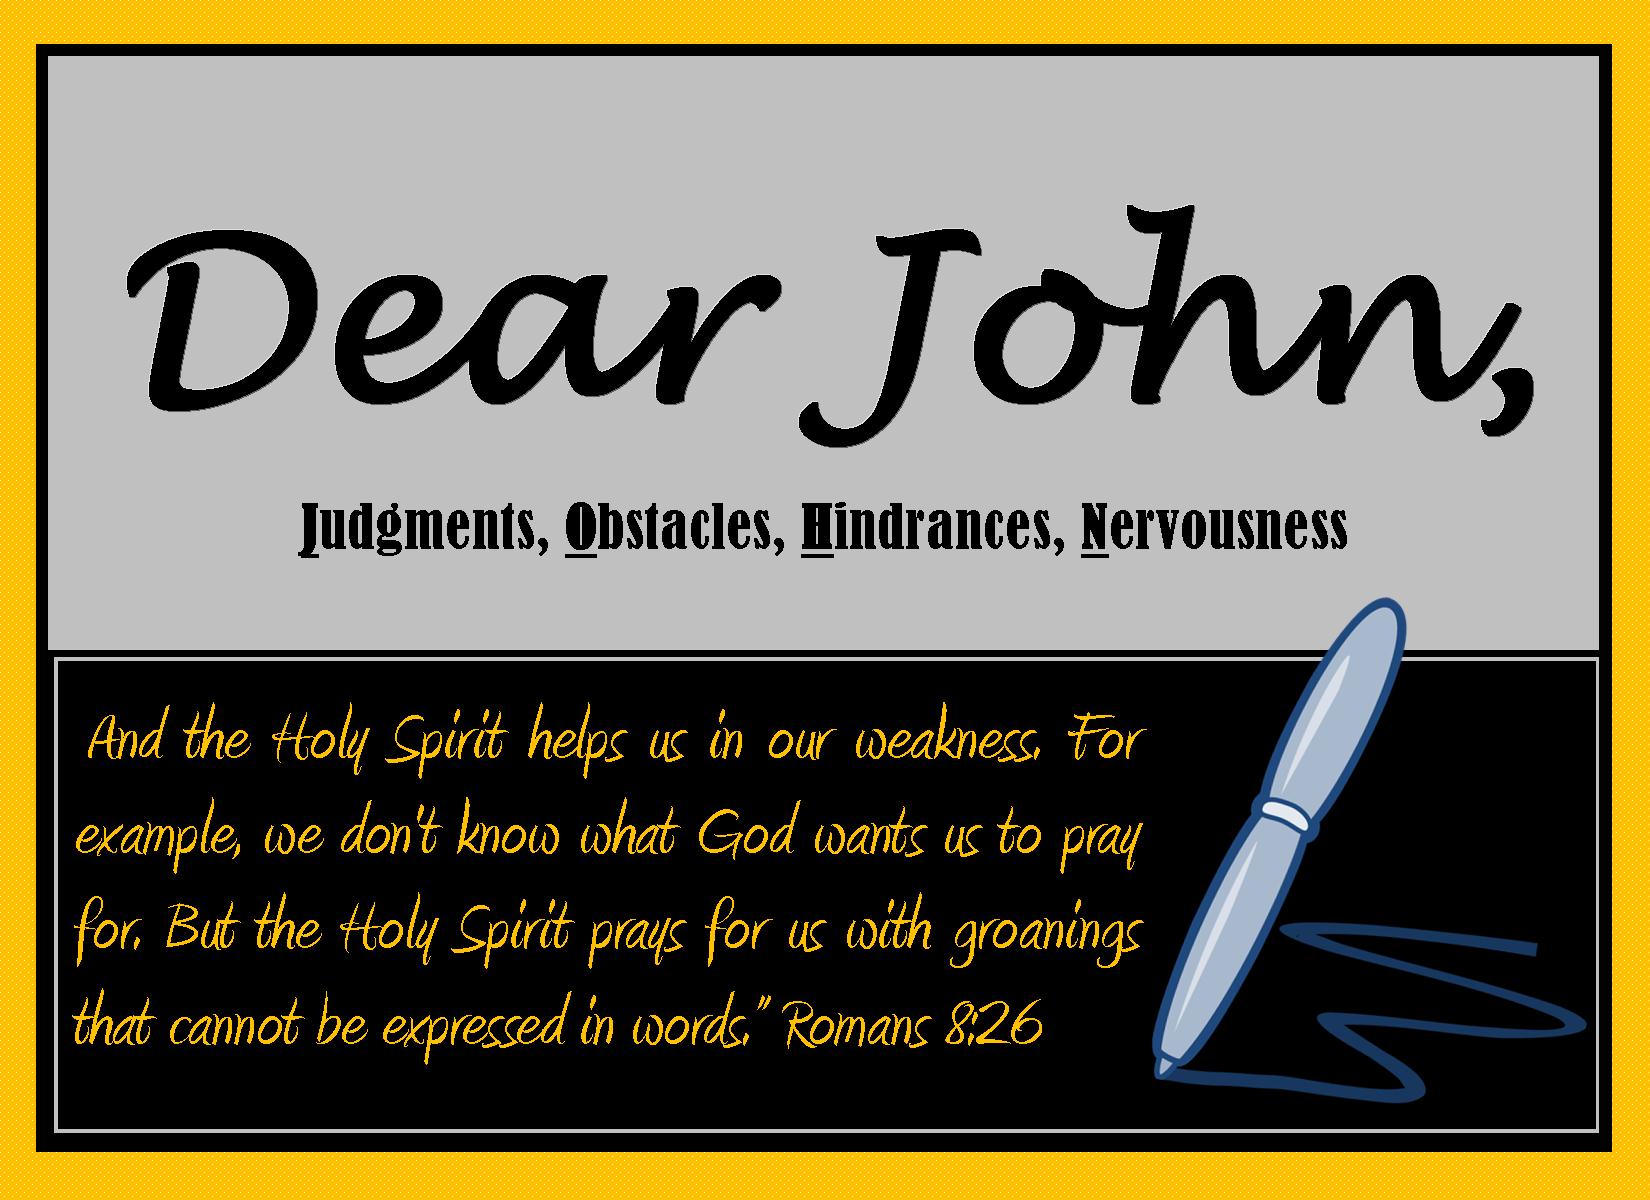 Dear John,
Judgments, Obstacles, Hindrances, Nervousness
And the Holy Spirit helps us in our weakness. For
example, we don't know what God wants us to pray
for. But the Holy Spirit prays for us with groanings
that cannot be expressed in words." Romans 8:26